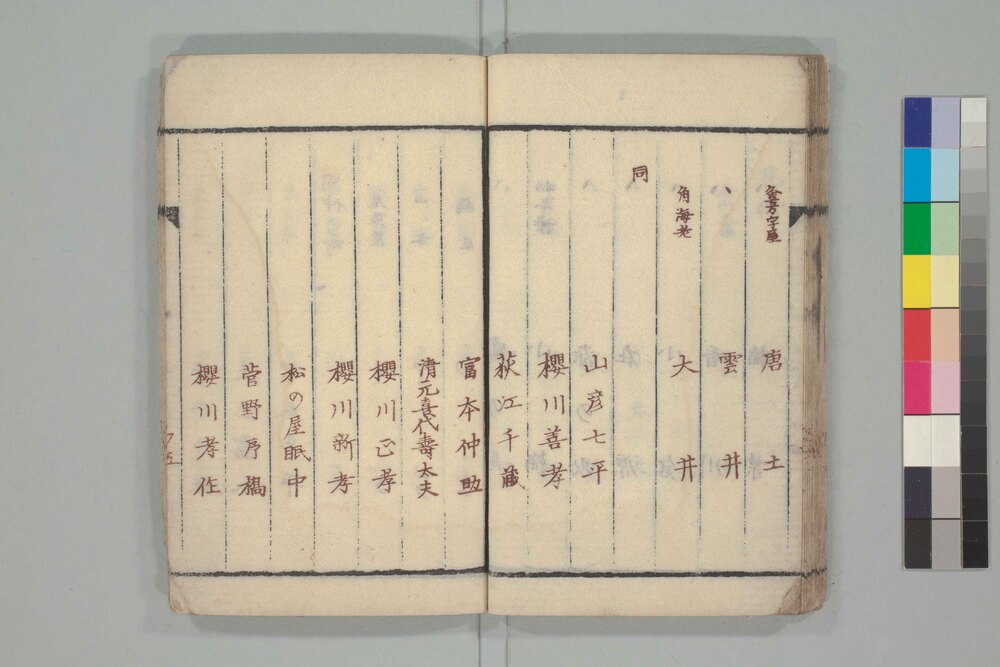 金喜万字屋 唐土
〃 雲井
角海老 大井
同
山彦七平
櫻川善孝
荻江千蔵
富本仲助
清元喜代壽太夫
櫻川正孝
櫻川新孝
松の屋眠中
菅野序橘
櫻川孝作